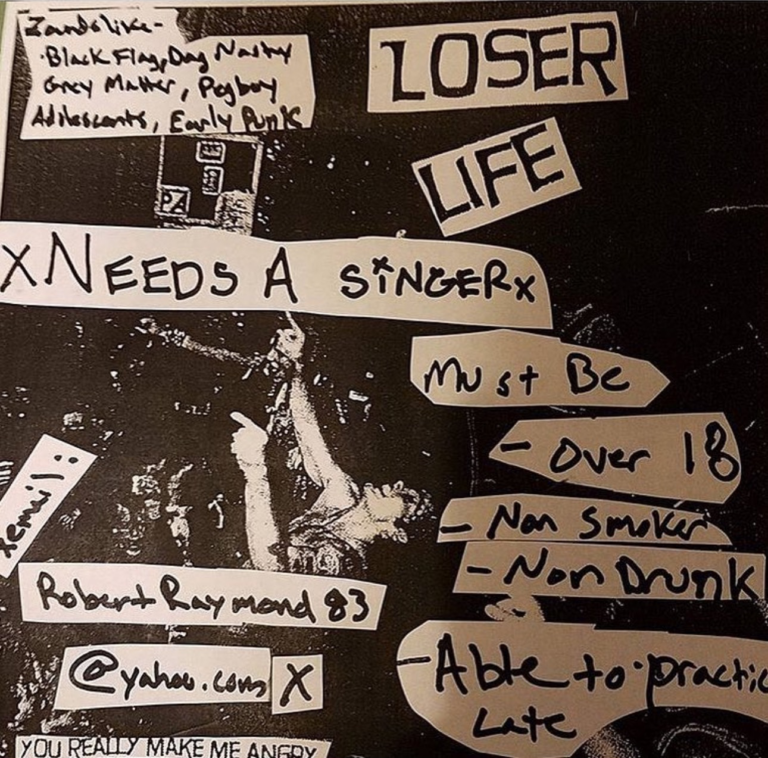 Zandslike-
·Black Flag, Dag Nasty
Grey Matter, Pegboy
Adilescents, Early Punk
LOSER
LIFE
xNEEDS A SiNGERx
Must Be
- Over 18
- Non Smoker
- Non Drunk
- Able to practic
Late
xemail:
Robert Raymond 83
@yahoo.com X
YOU REALLY MAKE ME ANGRY